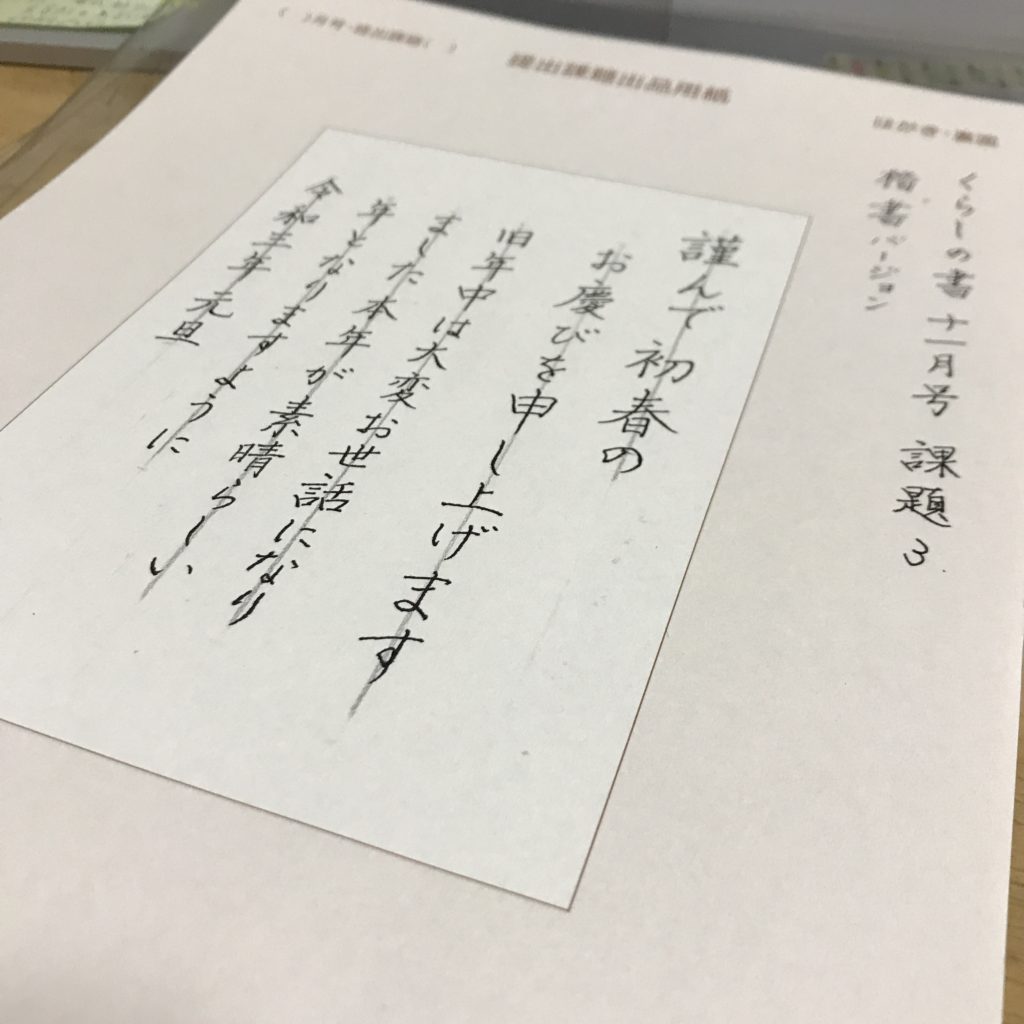 ( )月号・提出課題( )
提出課題出品用紙
はがき・裏面
くらしの書十一月号 課題3.
楷書バージョン
謹んで初春の
お慶びを申し上げます
旧年中は大変お世話になり
ました本年が素晴らしい
年となりますように
令和三年 元旦